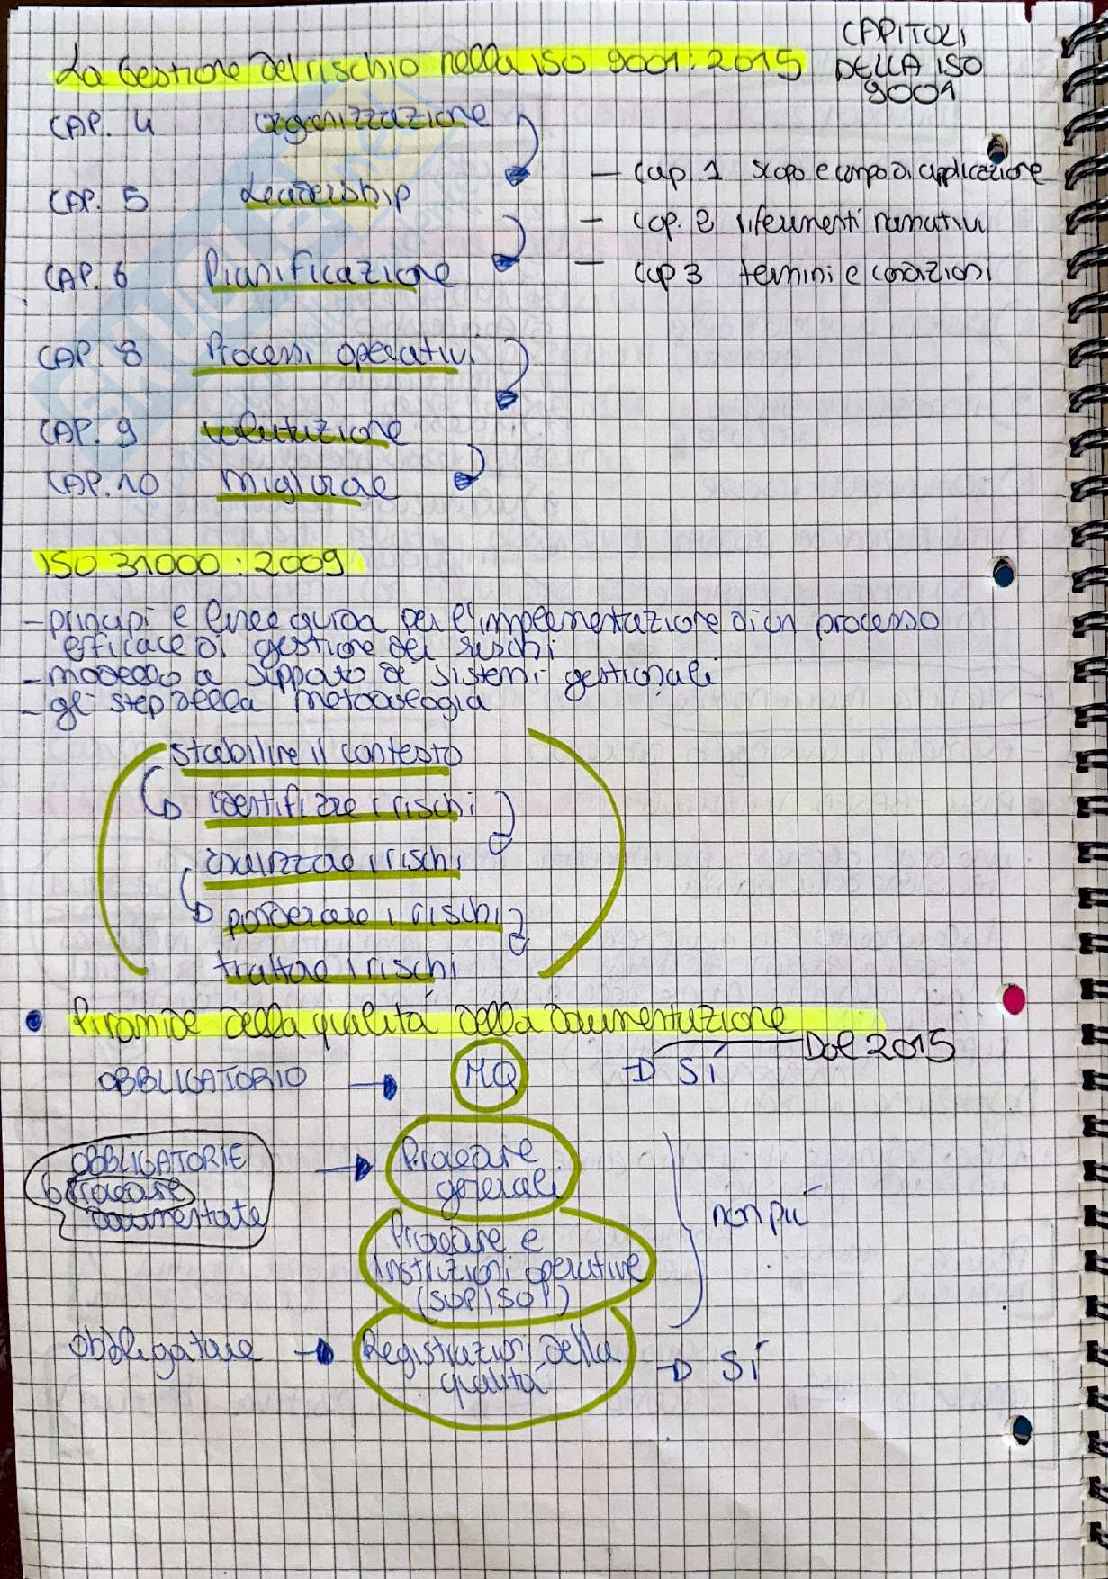 La Gestione del rischio nella ISO 9001:2015
CAPITOLI
DELLA ISO
9001
CAP. 4 organizzazione
CAP. 5 Leadership
CAP. 6 Pianificazione
CAP. 8 Processi operativi
CAP. 9 valutazione
CAP. 10 migliorare
- Cap 1 scopo e campo di applicazione
- Cap. 2 riferimenti normativi
- Cap 3 termini e condizioni
ISO 31000:2009
- principi e linee guida per l'implementazione di un processo
efficace di gestione dei rischi
- modello a supporto di sistemi gestionali
- gli step della metodologia
stabilire il contesto
identificare i rischi
analizzare i rischi
ponderare i rischi
trattare i rischi
• Piramide della qualità della documentazione
Dal 2015
OBBLIGATORIO → MQ → SÍ
OBBLIGATORIE
6 Procedure
documentate
Procedure
generali
Procedure e
istruzioni operative
(SOP, ISOP)
non più
obbligatorie → Registrazioni della
qualità
→ SÍ